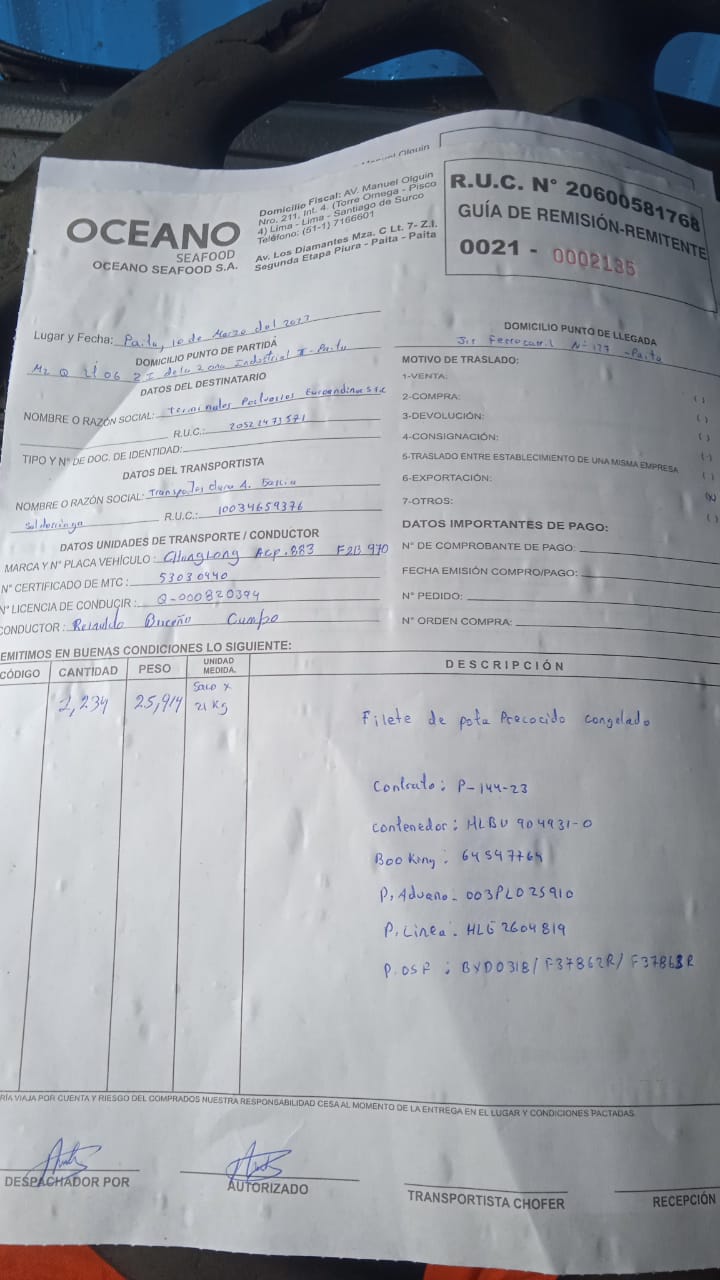 Manuel Olguin
OCEANO
SEAFOOD
OCEANO SEAFOOD S.A.
Domicilio Fiscal: AV. Manuel Olguin
Nro. 211. Int. 4. (Torre Omega - Pisco
4) Lima - Lima - Santiago de Surco
Teléfono: (51-1) 7166601
Av. Los Diamantes Mza. C Lt. 7- Z.I.
Segunda Etapa Piura - Paita - Paita
R.U.C. N° 20600581768
GUÍA DE REMISIÓN-REMITENTE
0021 - 0002135
Lugar y Fecha: Paita, 10 de Marzo del 2023
DOMICILIO PUNTO DE PARTIDA
Mz Q lt 06 Z I de la Zona Industrial II - Paita
DATOS DEL DESTINATARIO
NOMBRE O RAZÓN SOCIAL: Terminales Portuarios Euroandinos
R.U.C.: 20521473571
TIPO Y N° DE DOC. DE IDENTIDAD:
DATOS DEL TRANSPORTISTA
NOMBRE O RAZÓN SOCIAL: Transportes Clara A.
Saldarriaga R.U.C.: 10034659376
DATOS UNIDADES DE TRANSPORTE / CONDUCTOR
MARCA Y N° PLACA VEHÍCULO: ACP.883 F2B 970
N° CERTIFICADO DE MTC: 53030440
N° LICENCIA DE CONDUCIR: Q-000820394
CONDUCTOR: Reinaldo Cumpa
DOMICILIO PUNTO DE LLEGADA
Jir Ferrocarril N° 127 - Paita
MOTIVO DE TRASLADO:
1-VENTA: ( )
2-COMPRA: ( )
3-DEVOLUCIÓN: ( )
4-CONSIGNACIÓN: ( )
5-TRASLADO ENTRE ESTABLECIMIENTO DE UNA MISMA EMPRESA ( )
6-EXPORTACIÓN: (x)
7-OTROS: ( )
DATOS IMPORTANTES DE PAGO:
N° DE COMPROBANTE DE PAGO:
FECHA EMISIÓN COMPRO/PAGO:
N° PEDIDO:
N° ORDEN COMPRA:
EMITIMOS EN BUENAS CONDICIONES LO SIGUIENTE:
CÓDIGO CANTIDAD PESO UNIDAD MEDIDA. DESCRIPCIÓN
1,234 25,914 Saco x 21 Kg
Filete de pota Precocido congelado
Contrato: P-144-23
Contenedor: HLBU 904931-0
Booking: 64547764
P. Aduana. 003PL025910
P. Linea. HLG2604819
P. OSP: BVD0318/F37862R/F37863R
RÍA VIAJA POR CUENTA Y RIESGO DEL COMPRADOS NUESTRA RESPONSABILIDAD CESA AL MOMENTO DE LA ENTREGA EN EL LUGAR Y CONDICIONES PACTADAS
DESPACHADOR POR
AUTORIZADO
TRANSPORTISTA CHOFER
RECEPCIÓN